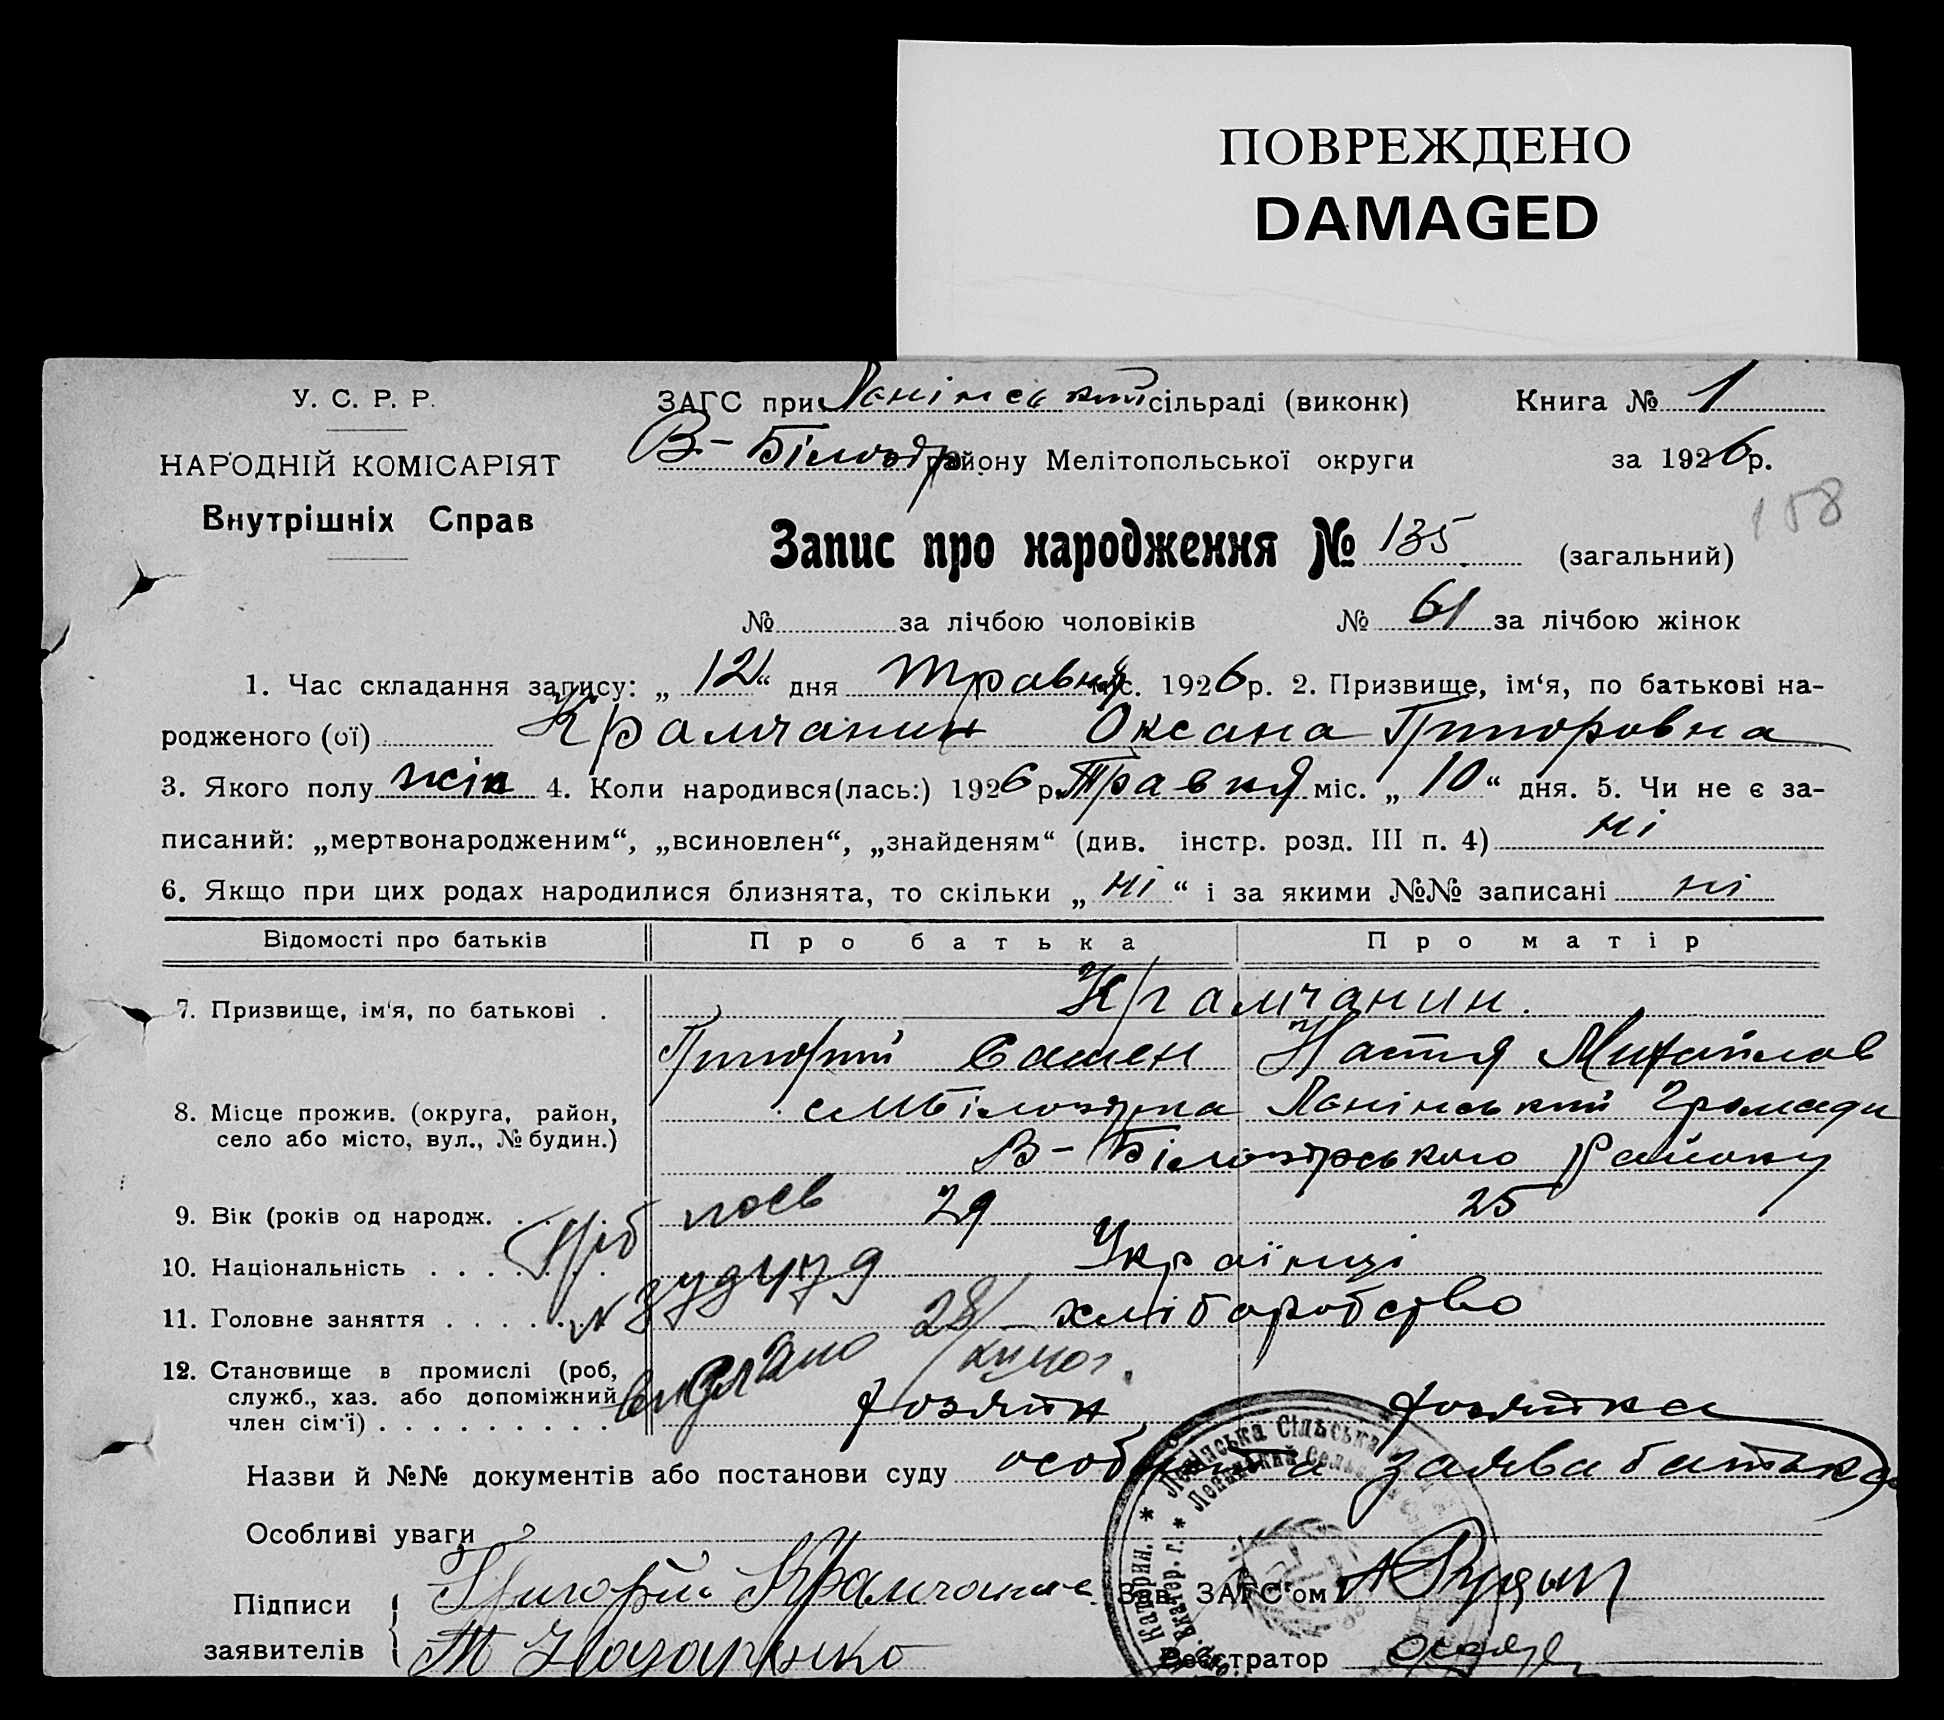 ПОВРЕЖДЕНО
DAMAGED
У. С. Р. Р.
ЗАГС при сільраді (виконк)
Книга № 1
НАРОДНІЙ КОМІСАРІЯТ
В-Білозір району Мелітопольської округи
за 1926 р.
Внутрішніх Справ
158
Запис про народження № 135 (загальний)
№ за лічбою чоловіків № 61 за лічбою жінок
1. Час складання запису: „ 12 “ дня Травня міс. 1926 р. 2. Призвище, ім‘я, по батькові на-
родженого (ої) Крамчанин Оксана Григоровна
3. Якого полу жін 4. Коли народився(лась:) 1926 р. Травня міс. „ 10 “ дня. 5. Чи не є за-
писаний: „мертвонародженим“, „всиновлен“, „знайденям“ (див. інстр. розд. III п. 4) ні
6. Якщо при цих родах народилися близнята, то скільки „ ні “ і за якими №№ записані ні
Відомості про батьків Про батька Про матір
7. Призвище, ім'я, по батькові . Крамчанин.
Григорий Семен Настя Михайлов
8. Місце прожив. (округа, район,
село або місто, вул., № будин.)
Громади
В-Білозірського Району
9. Вік (років од народж. . . 29 25
10. Національність . . . . . . . Українці
11. Головне заняття . . . . . . хліборобство
28/
12. Становище в промислі (роб,
служб., хаз. або допоміжний
член сім'ї) . . . . . . . . . хозяїн хозяйка
Назви й №№ документів або постанови суду особиста заява батька
Особливі уваги
Підписи
заявителів
Григорій Крамчанин
Т Назаренко
Зав. ЗАГС'ом
Реєстратор
Сільська
Катерин.
Екатер. г.